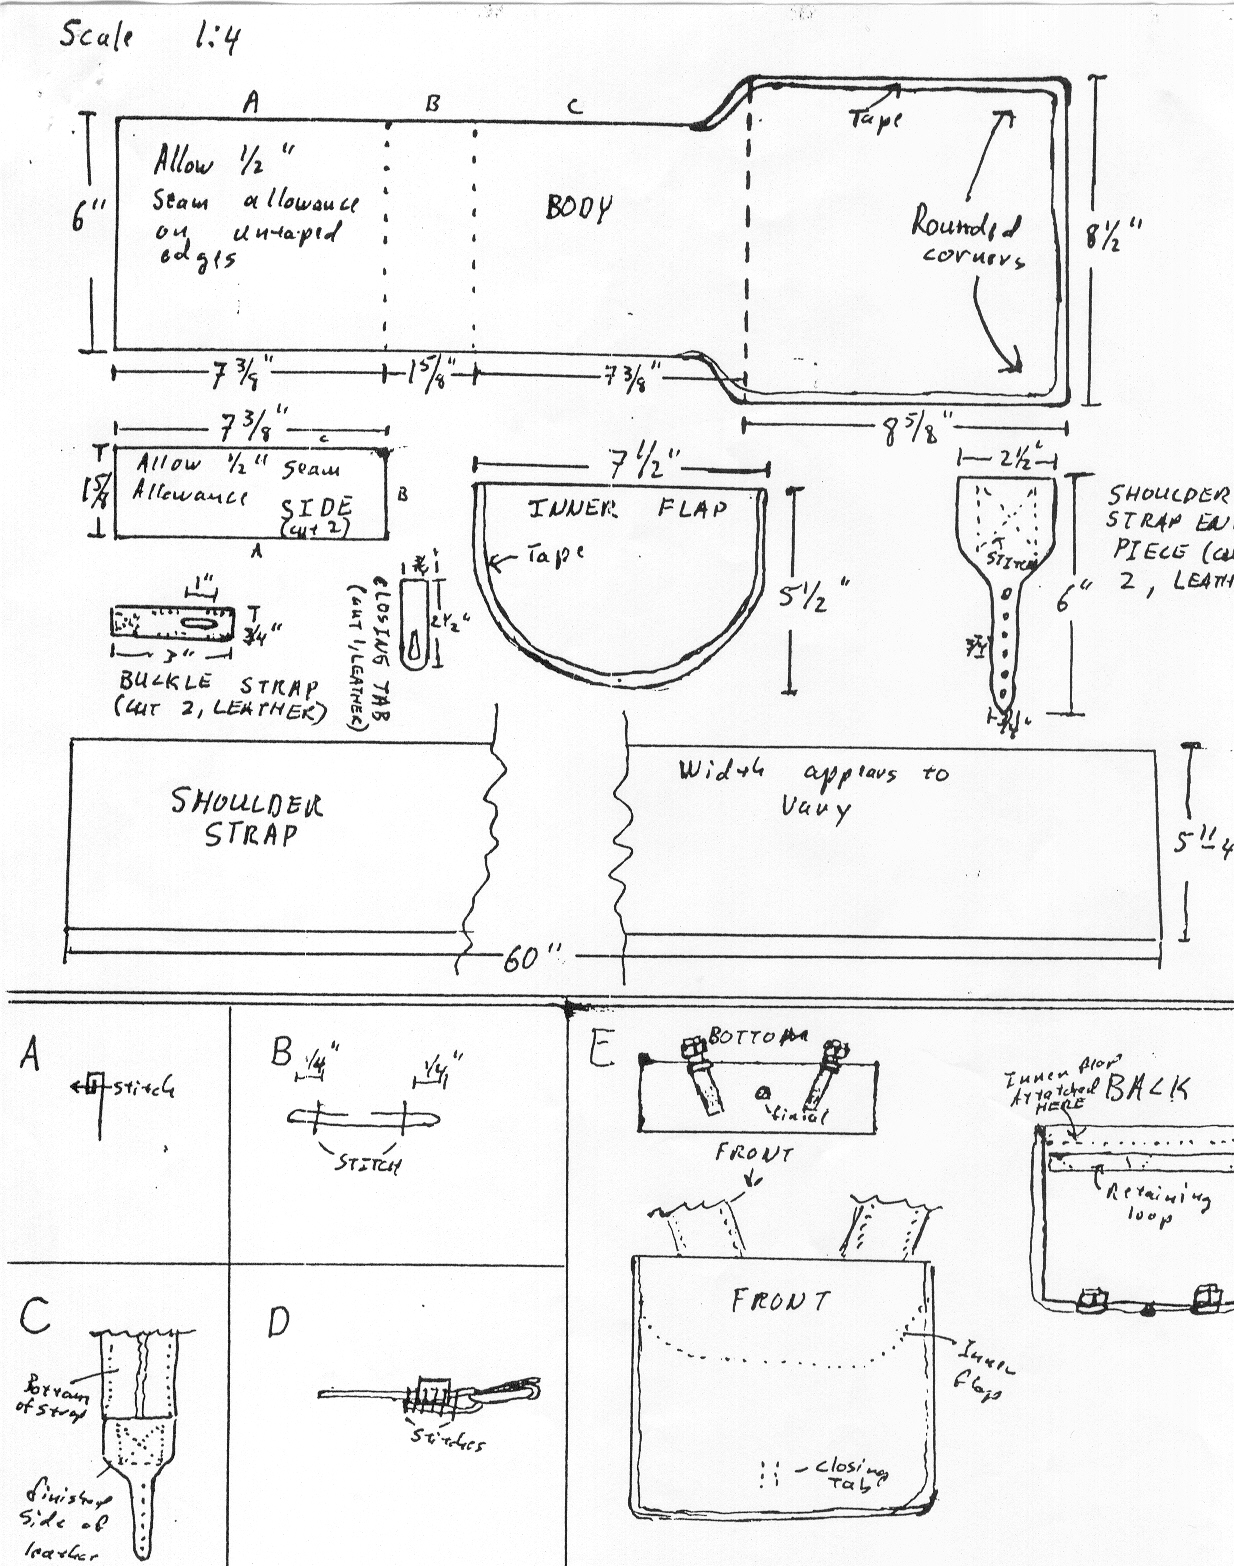 Scale 1:4
A B C
Tape
Allow 1/2"
seam allowance
on untaped
edges
BODY
Rounded
corners
6"
8 1/2"
7 3/8" 1 5/8" 7 3/8"
8 5/8"
7 3/8"
C
Allow 1/2" seam
Allowance
SIDE
(cut 2)
1 5/8
B
A
7 1/2"
INNER FLAP
Tape
5 1/2"
2 1/2"
STITCH
6"
3/4"
SHOULDER
STRAP EN
PIECE (CU
2, LEATH
1"
3/4"
3"
BUCKLE STRAP
(CUT 2, LEATHER)
2 1/2"
CLOSING TAB
(CUT 1, LEATHER)
SHOULDER
STRAP
Width appears to
vary
60"
A
stitch
B
1/4" 1/4"
STITCH
C
Bottom
of strap
finished
side of
leather
D
Stitches
E
BOTTOM
finial
FRONT
FRONT
Inner
flap
closing
TAB
Inner flap
Attatched
HERE
BACK
Retaining
loop